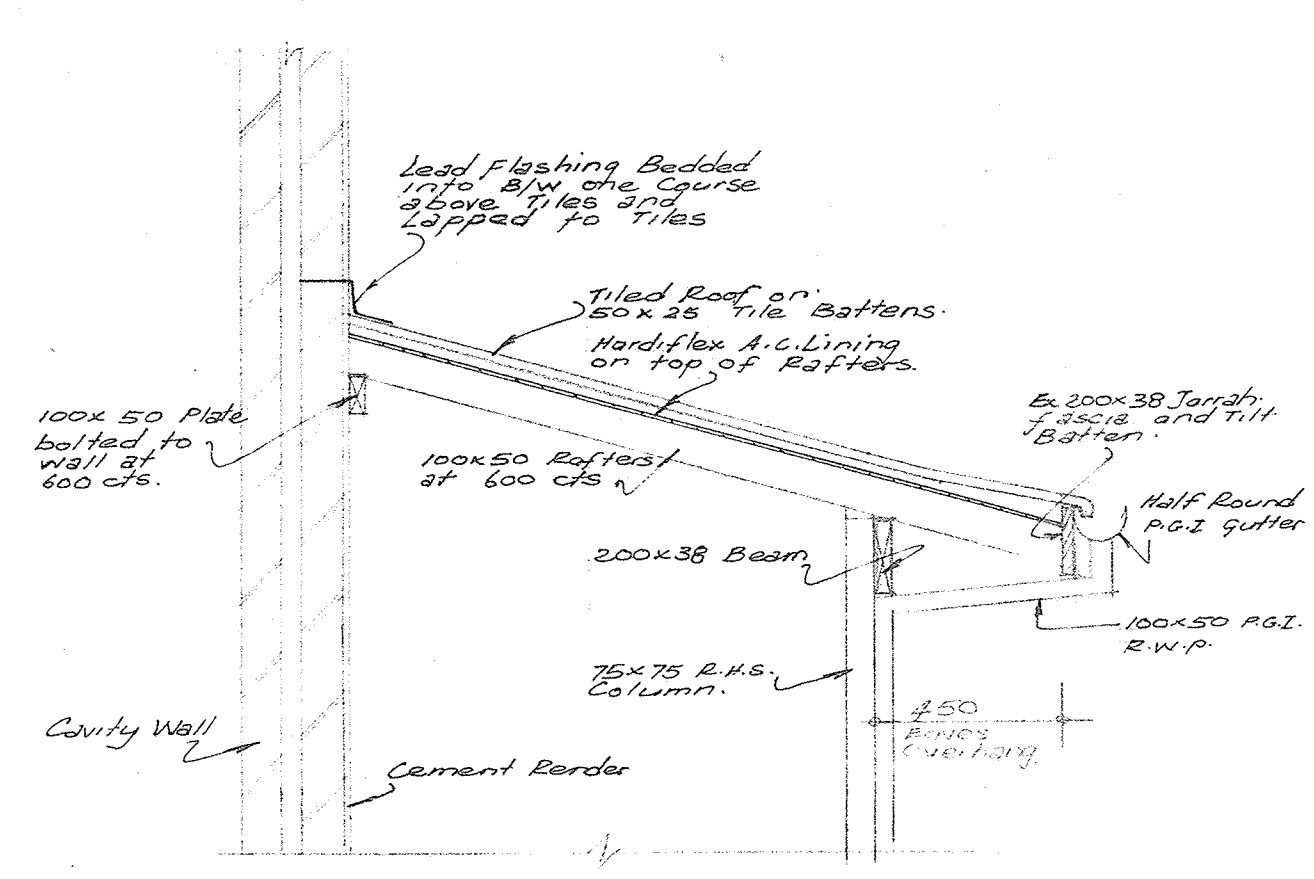 Lead Flashing Bedded
into B/W one Course
above Tiles and
Lapped to Tiles
Tiled Roof on
50 x 25 Tile Battens.
Hardiflex A.C. Lining
on top of Rafters.
100 x 50 Plate
bolted to
wall at
600 cts.
100x50 Rafters
at 600 cts
Ex 200x38 Jarrah
fascia and Tilt
Batten.
Half Round
P.G.I gutter
200x38 Beam
100x50 P.G.I.
R.W.P.
75x75 R.H.S.
Column.
450
Eaves
Overhang.
Cavity Wall
Cement Render